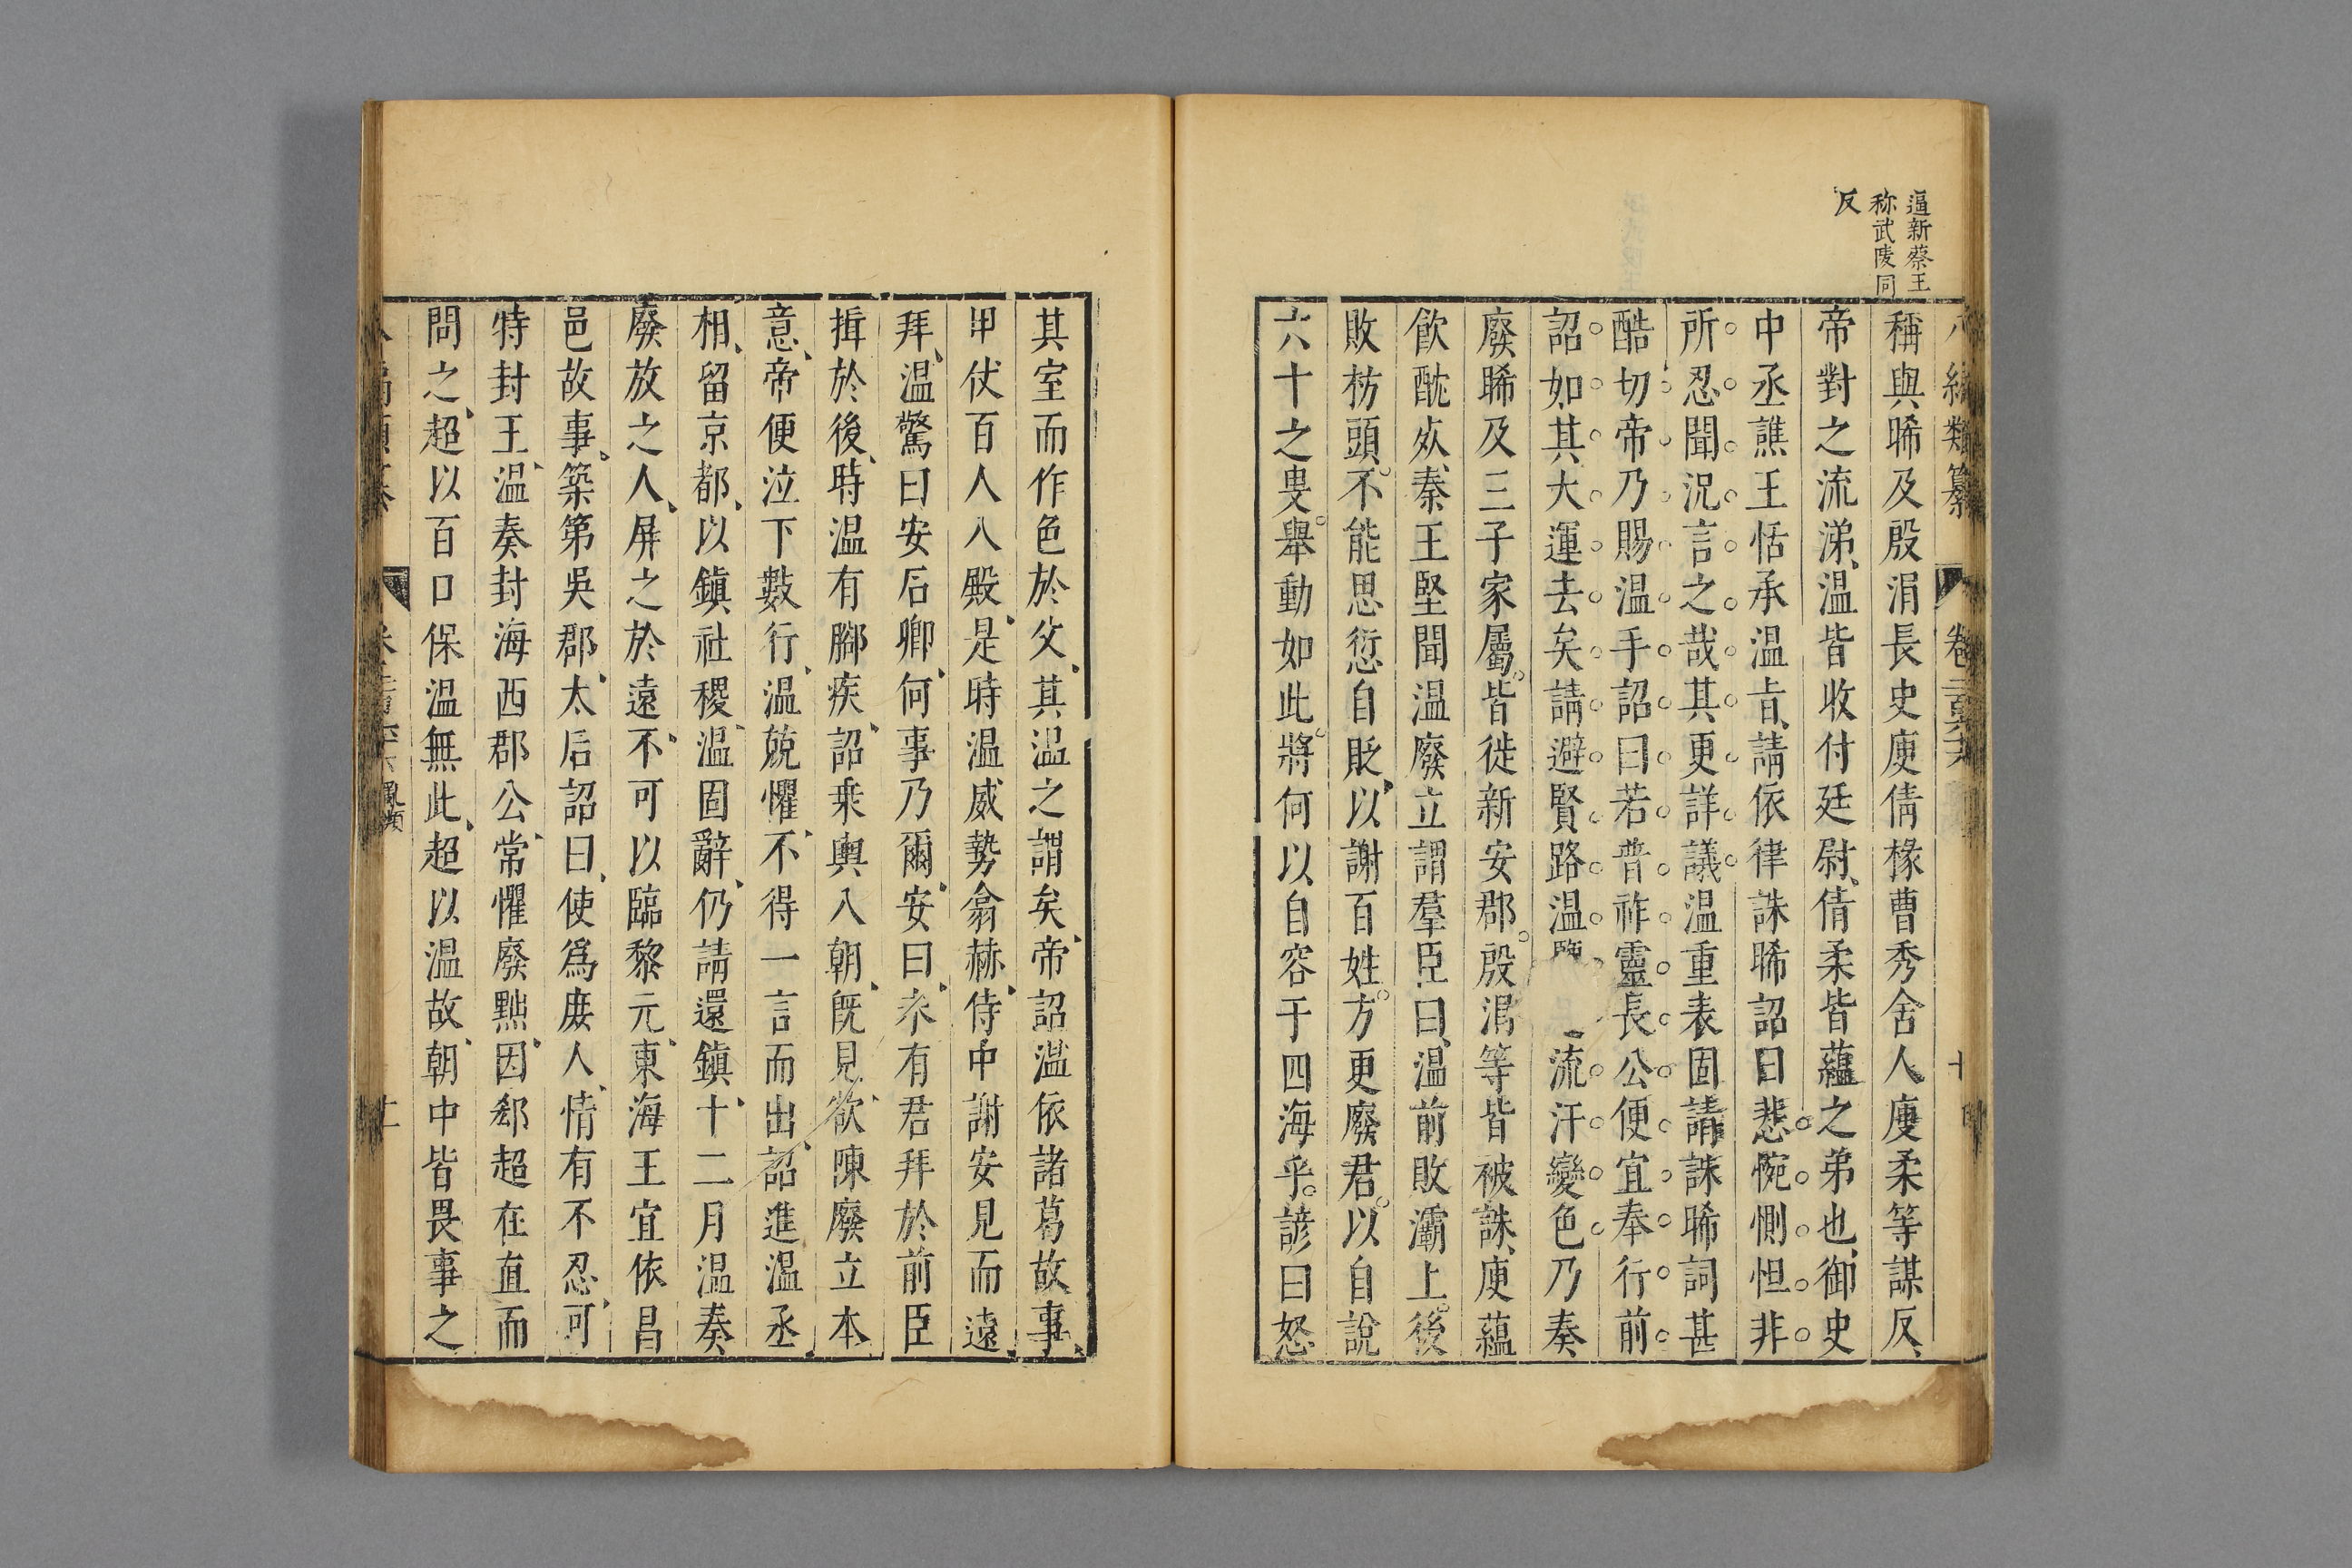 逼新蔡王
称武陵同
反
稱與晞及殷涓長史庾倩椽曹秀舍人庾柔等謀反、
帝對之流涕、温皆收付廷尉、倩柔皆蘊之弟也、御史
中丞譙王恬承温旨、請依律誅晞詔曰悲惋惻怛非
所忍聞況言之哉其更詳議温重表固請誅晞詞甚
酷切帝乃賜温手詔曰若晉祚靈長公便宜奉行前
詔如其大運去矣請避賢路温 流汗變色乃奏
廢晞及三子家屬。皆徙新安郡。殷涓等皆被誅、庾蘊
飲酖死、秦王堅聞温廢立謂羣臣曰、温前敗灞上。後
敗枋頭。不能思愆自貶、以謝百姓。方更廢君。以自說
六十之叟。舉動如此。將何以自容于四海乎。諺曰怒
其室而作色於父、其温之謂矣、帝詔温依諸葛故事、
甲仗百人入殿、是時温威勢翕赫、侍中謝安見而遠
拜、温驚曰安石卿、何事乃爾、安曰、未有君拜於前臣
揖於後、時温有腳疾、詔乘輿入朝、旣見、欲陳廢立本
意、帝便泣下數行、温兢懼、不得一言而出、詔進温丞
相、留京都、以鎭社稷、温固辭、仍請還鎭、十二月温奏、
廢放之人、屏之於遠、不可以臨黎元、東海王宜依昌
邑故事、築第吳郡、太后詔曰、使爲庶人、情有不忍、可
特封王、温奏封海西郡公、常懼廢黜、因郄超在直而
問之、超以百口保温無此、超以温故、朝中皆畏事之